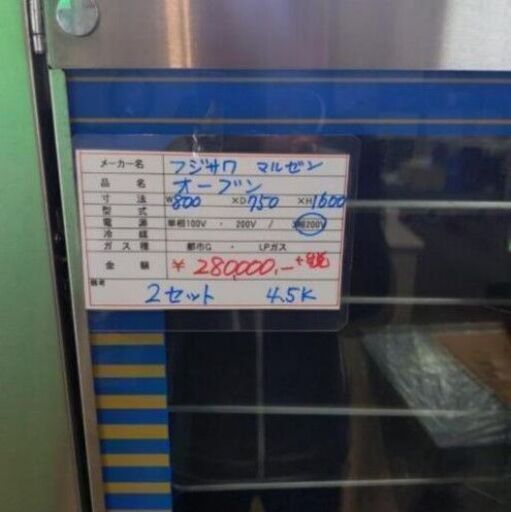 メーカー名 フジサワ マルゼン
品名 オーブン
寸法 W800 ×D750 ×H1600
型式
電源 単相100V ・ 200V / 3相200V
冷媒
ガス種 都市G ・ LPガス
金額 ¥280,000,-+税
備考
2セット 4.5K